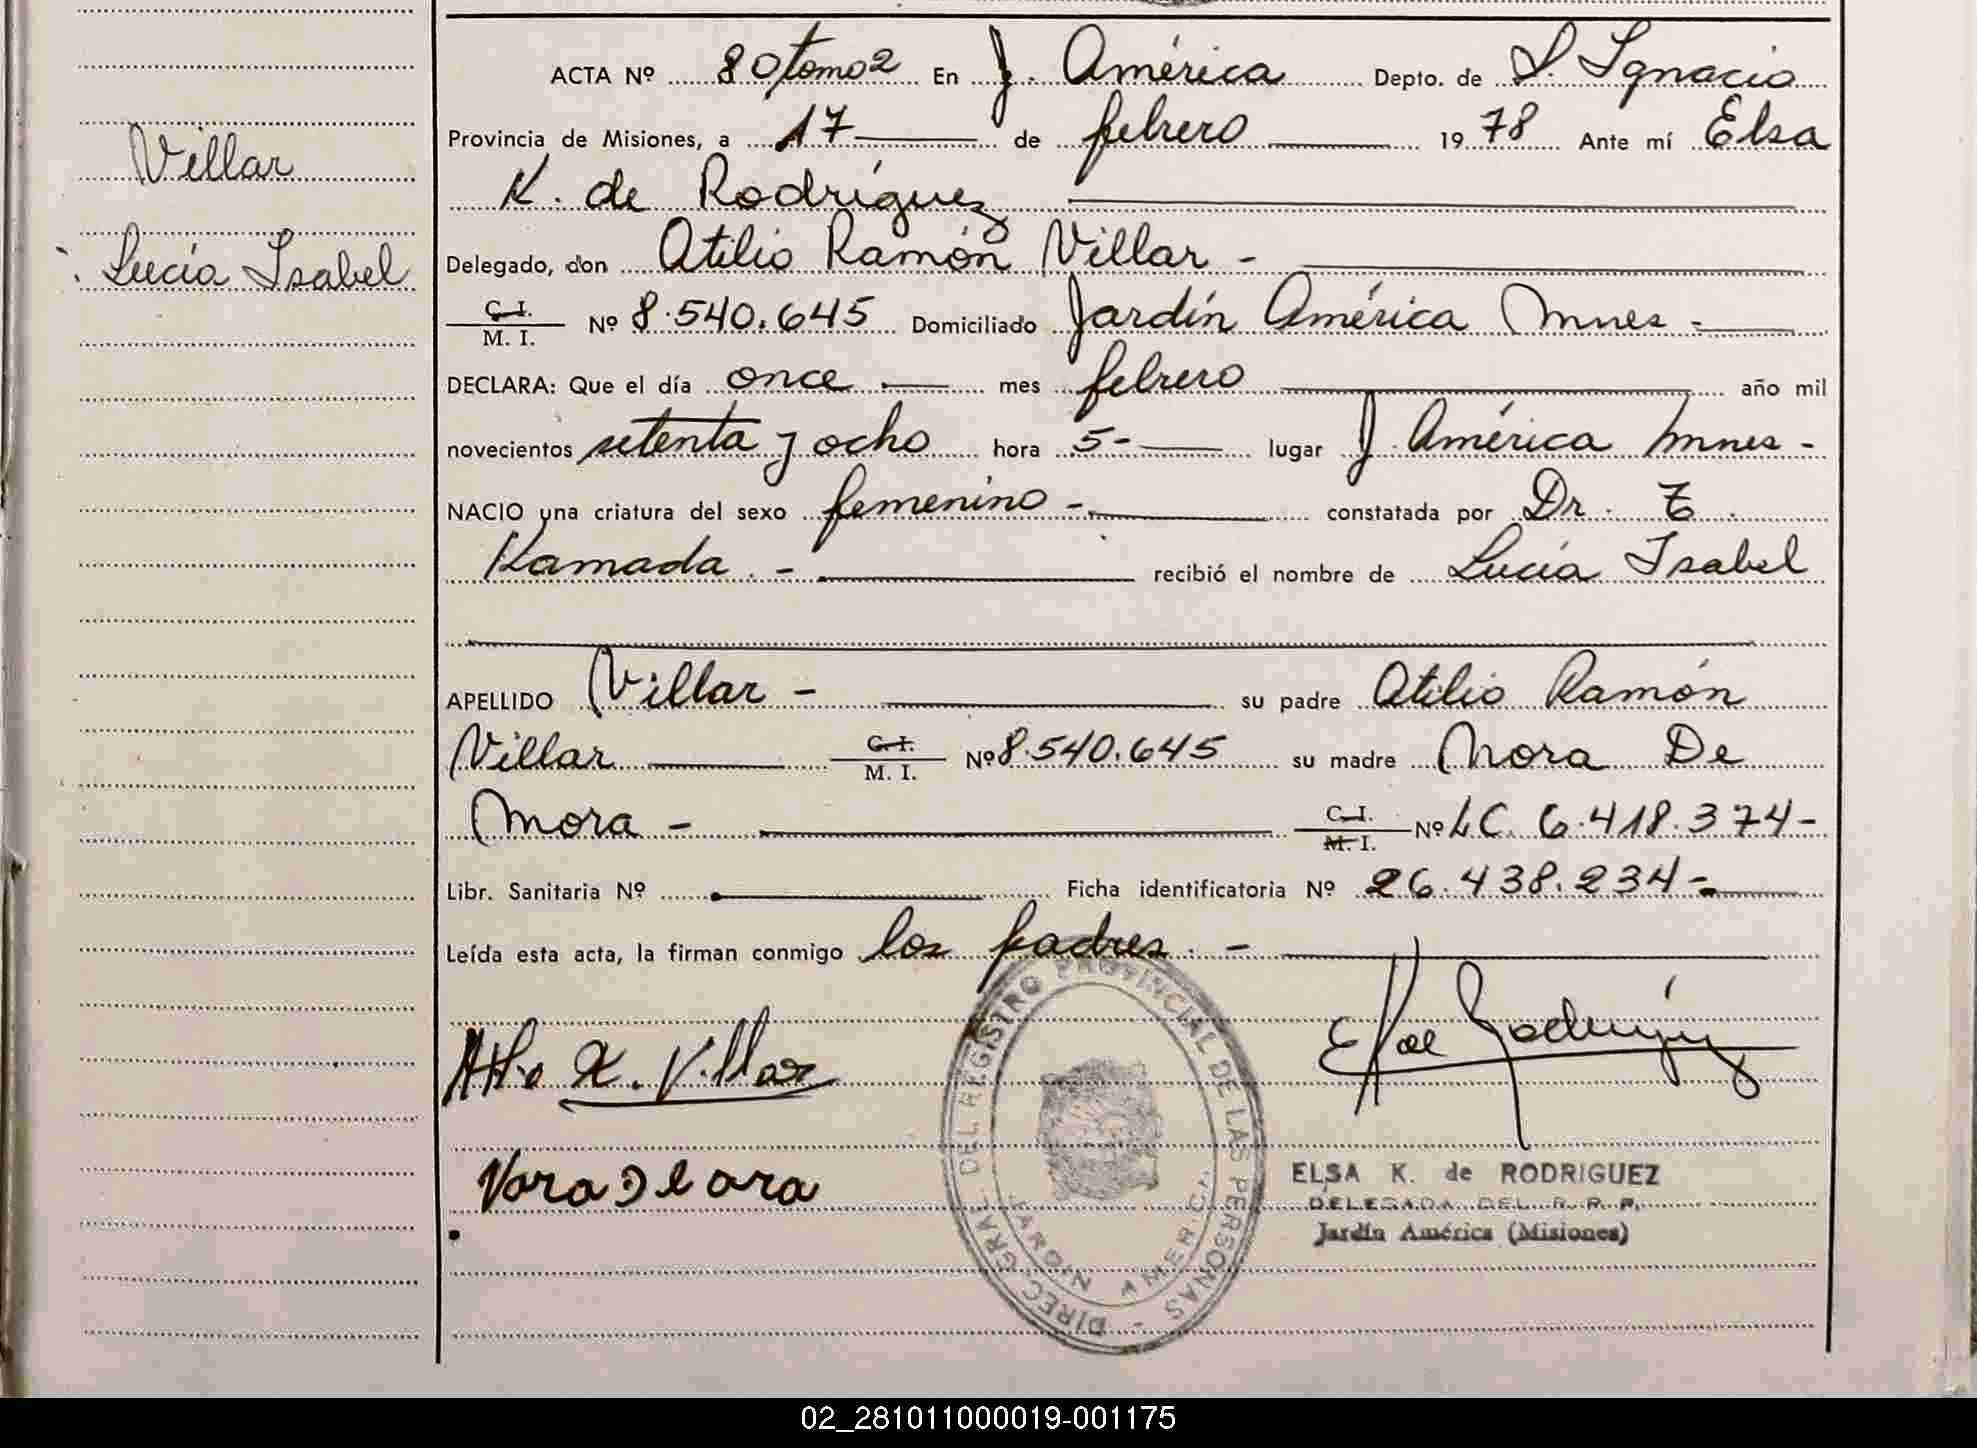 ACTA Nº 80 tomo 2 En J. América Depto. de S. Ignacio
Provincia de Misiones, a 17 de febrero 1978 Ante mí Elsa
K. de Rodríguez
Delegado, don Atilio Ramón Villar -
C. I. / M. I. Nº 8.540.645 Domiciliado Jardín América Mnes -
DECLARA: Que el día once mes febrero año mil
novecientos setenta y ocho hora 5- lugar J. América Mnes -
NACIO una criatura del sexo femenino - constatada por Dr. T.
Kamada. - recibió el nombre de Lucía Isabel
APELLIDO Villar - su padre Atilio Ramón
Villar C. I. / M. I. Nº 8.540.645 su madre Nora De
Mora - C. I. / M. I. Nº LC. 6.418.374-
Libr. Sanitaria Nº Ficha identificatoria Nº 26.438.234-
Leída esta acta, la firman conmigo los padres. -
Villar
Lucía Isabel
DIREC. GRAL. DEL REGISTRO PROVINCIAL DE LAS PERSONAS -
JARDIN AMERICA
ELSA K. de RODRIGUEZ
DELEGADA DEL R. R. P.
Jardín América (Misiones)
02_281011000019-001175